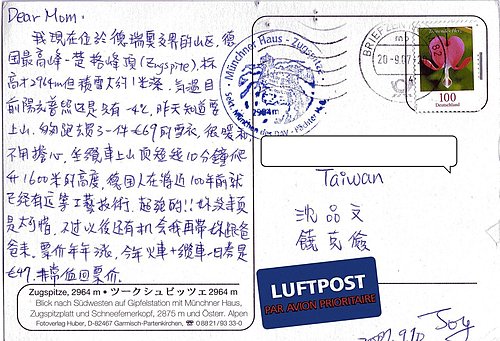 Dear Mom:
我現在位於德瑞奧交界的山區, 德
國最高峰-楚格峰頂 (Zugspitze). 標
高才2964m但積雪大約1米深, 氣溫目
前陽光普照還是只有-4℃, 昨天知道要
上山, 夠跑去買了一件€69的雪衣, 很暖和,
不用擔心. 坐纜車上山頂短短10分鐘爬
升1600米的高度, 德國人在將近100年前就
已經有這等工藝技術, 超強的!!
是太可惜, 不过以後还有机会我再帶妳跟爸
爸來. 票价年年漲, 今年火車+纜車一日券是
€47, 非常值回票价.
Zugspitze, 2964 m • ツークシュピッツェ 2964 m
Blick nach Südwesten auf Gipfelstation mit Münchner Haus,
Zugspitzplatt und Schneefernerkopf, 2875 m und Österr. Alpen
Fotoverlag Huber, D-82467 Garmisch-Partenkirchen, ☎ 0 88 21/93 33-0
Münchner Haus - Zugspitze
2964 m
Sekt. München des DAV - Pächter
BRIEFZEN
20-9.07
82
100
Deutschland
Taiwan
沈品文
LUFTPOST
PAR AVION PRIORITAIRE
Joy